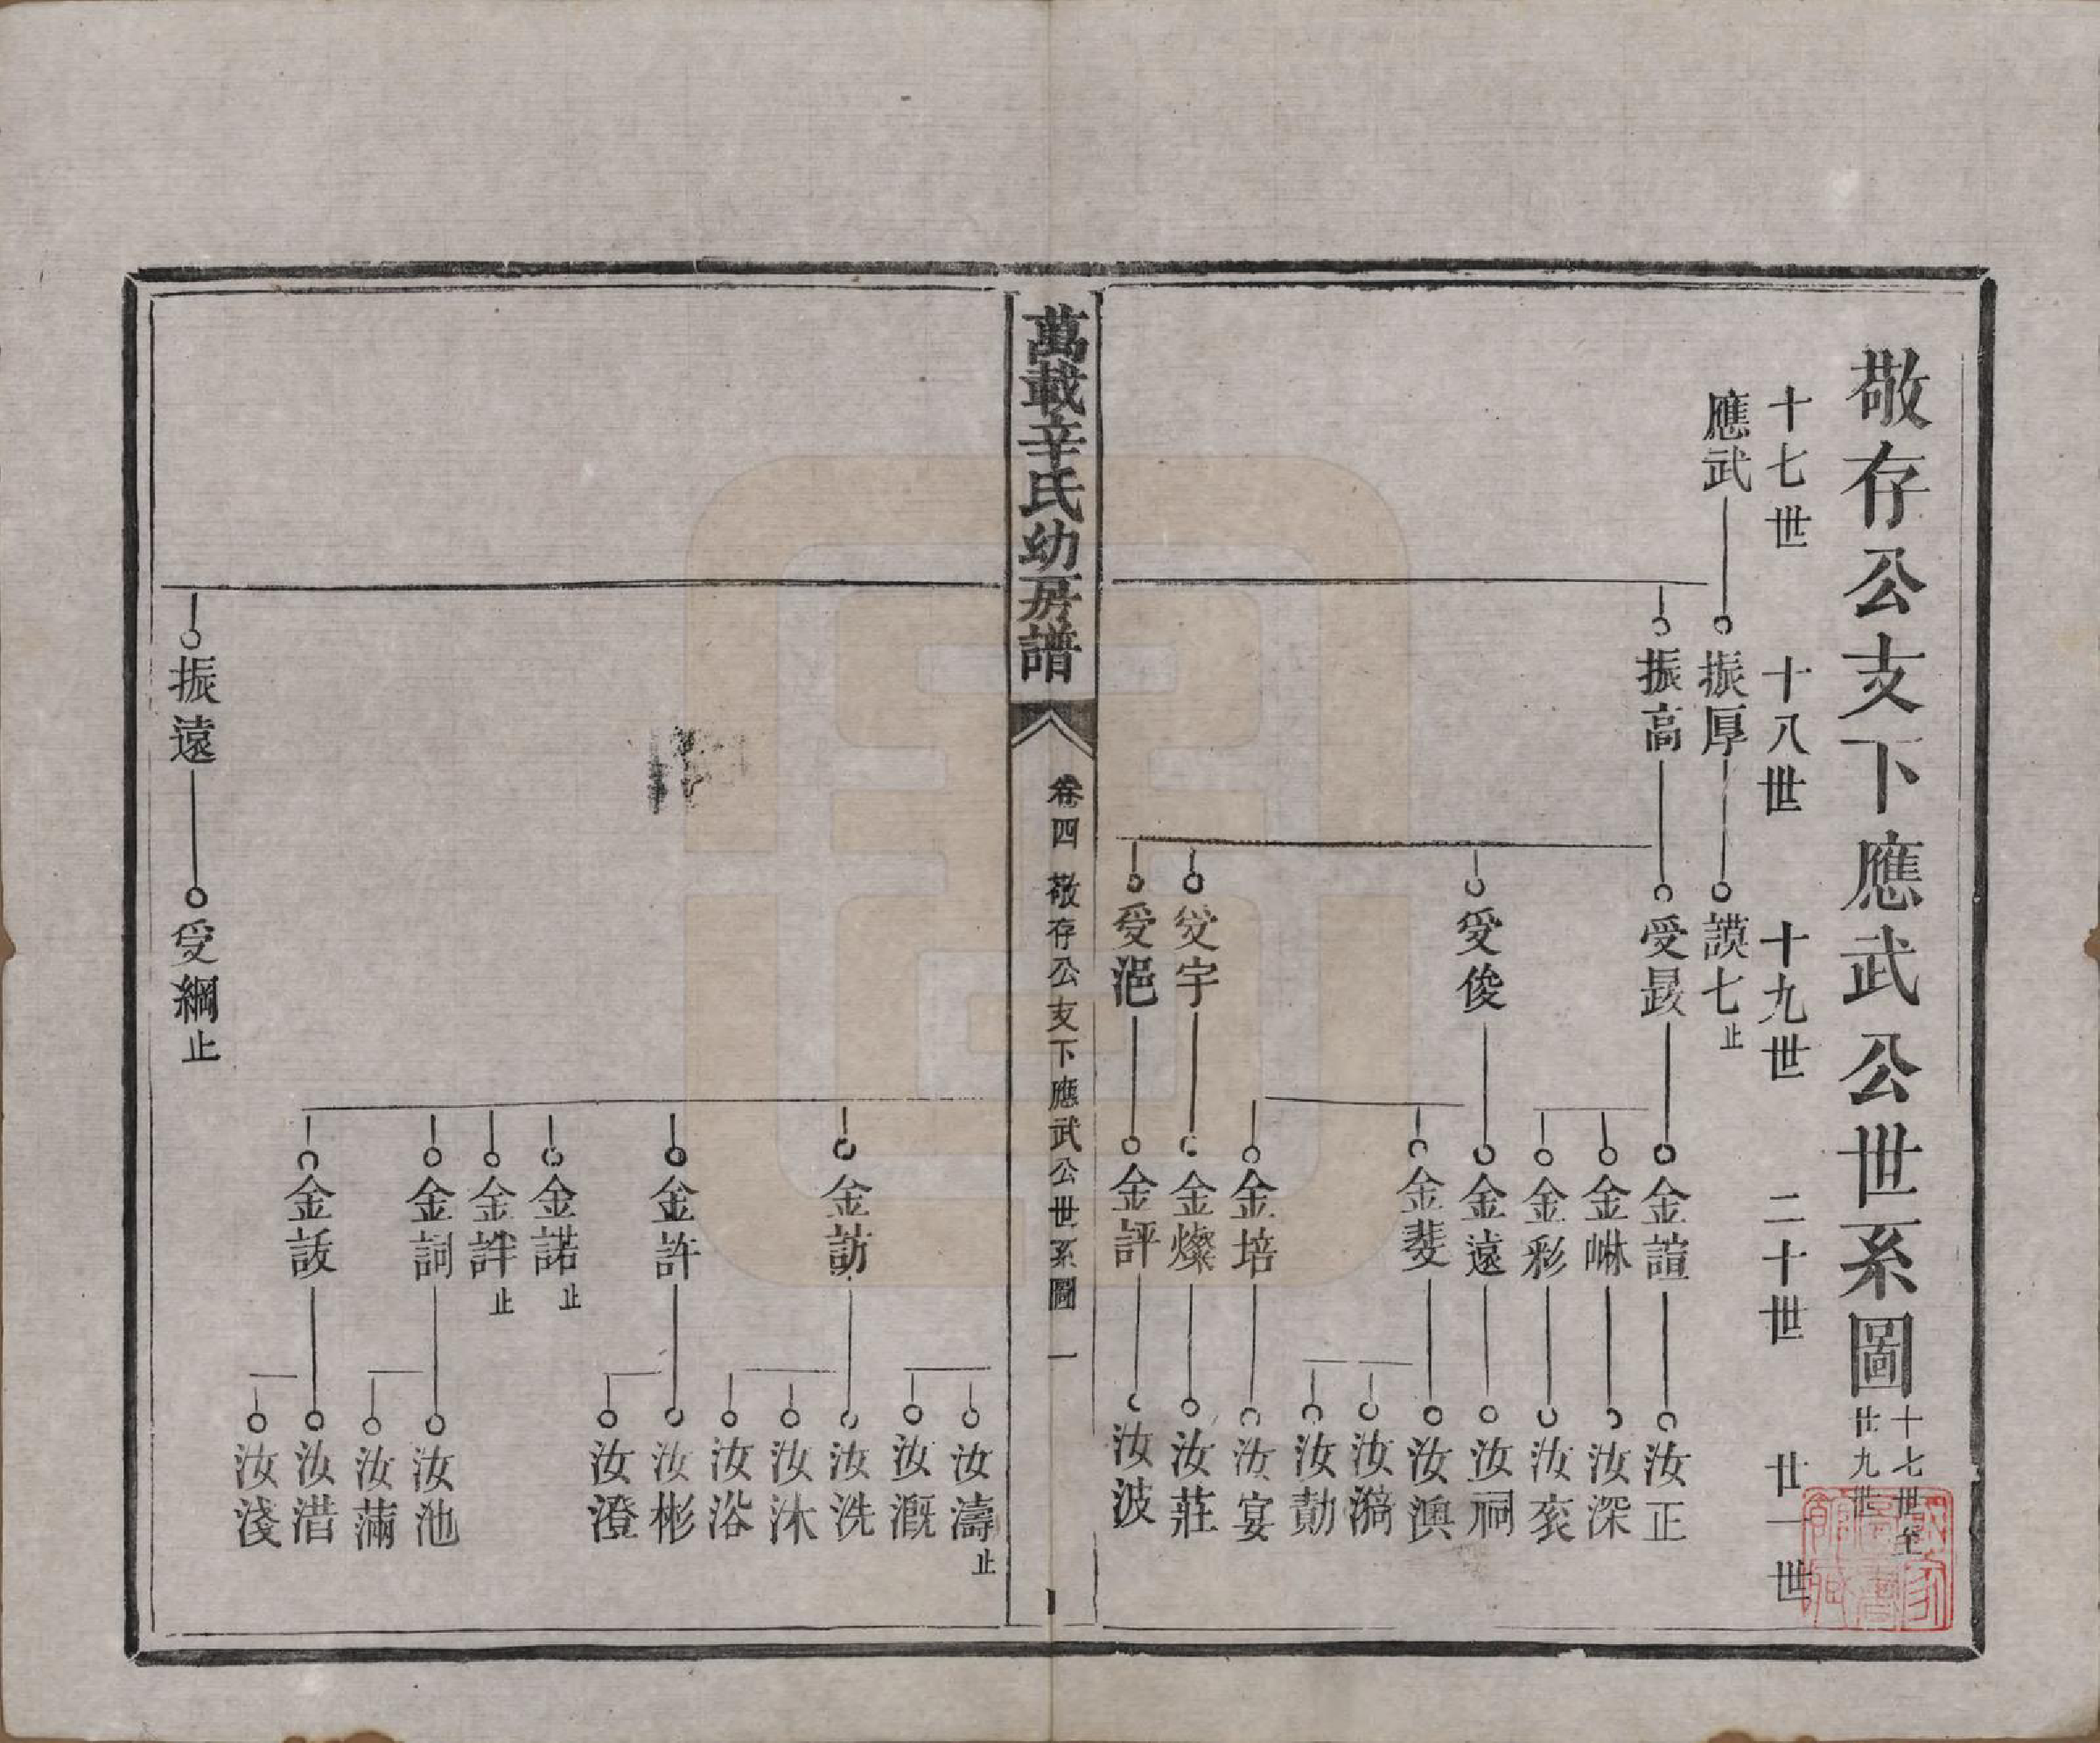 敬存公支下應武公世系圖十七世至廿九世
十七世 十八世 十九世 二十世 廿一世
應武 振厚 謨七止
振高 受晸 金諠 汝正
金崊 汝深
金彩 汝袞
受俊 金遠 汝祠
金斐 汝澳
汝漪
汝勣
金培 汝宴
受宇 金燦 汝莊
受浥 金評 汝波
萬載辛氏幼房譜 卷四 敬存公支下應武公世系圖 一
汝濤止
汝溉
金訪 汝洗
汝沐
汝浴
金許 汝彬
汝澄
金諾止
金詳止
金詞 汝池
汝滿
金話 汝浩
汝淺
振遠 受綱止